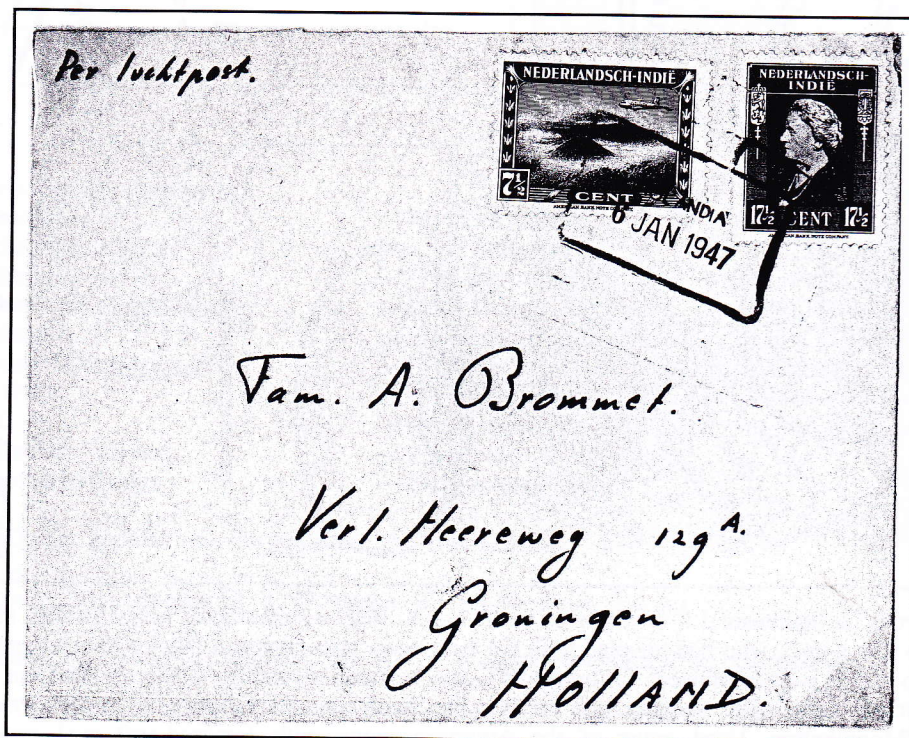 Per luchtpost.
NEDERLANDSCH-INDIË
7½
CENT
AMERICAN BANK NOTE COMPANY.
NEDERLANDSCH-
INDIË
17½ CENT 17½
AMERICAN BANK NOTE COMPANY.
INDIA
6 JAN 1947
Fam. A. Brommet.
Verl. Heereweg 129A.
Groningen
HOllAND.